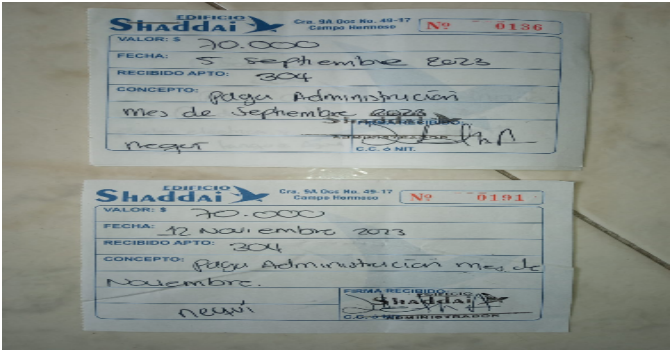 EDIFICIO
Shaddai
Cra. 9A Occ No. 49-17
Campo Hermoso
Nº 0136
VALOR: $ 70.000
FECHA: 5 Septiembre 2023
RECIBIDO APTO: 304
CONCEPTO: Paga Administración
mes de Septiembre 2023
Shaddai
nequi
C.C. ó NIT.
EDIFICIO
Shaddai
Cra. 9A Occ No. 49-17
Campo Hermoso
Nº 0191
VALOR: $ 70.000
FECHA: 12 Noviembre 2023
RECIBIDO APTO: 304
CONCEPTO: Paga Administración mes de
Noviembre.
FIRMA RECIBIDO
Shaddai
nequi
C.C. ó
ADMINISTRADOR